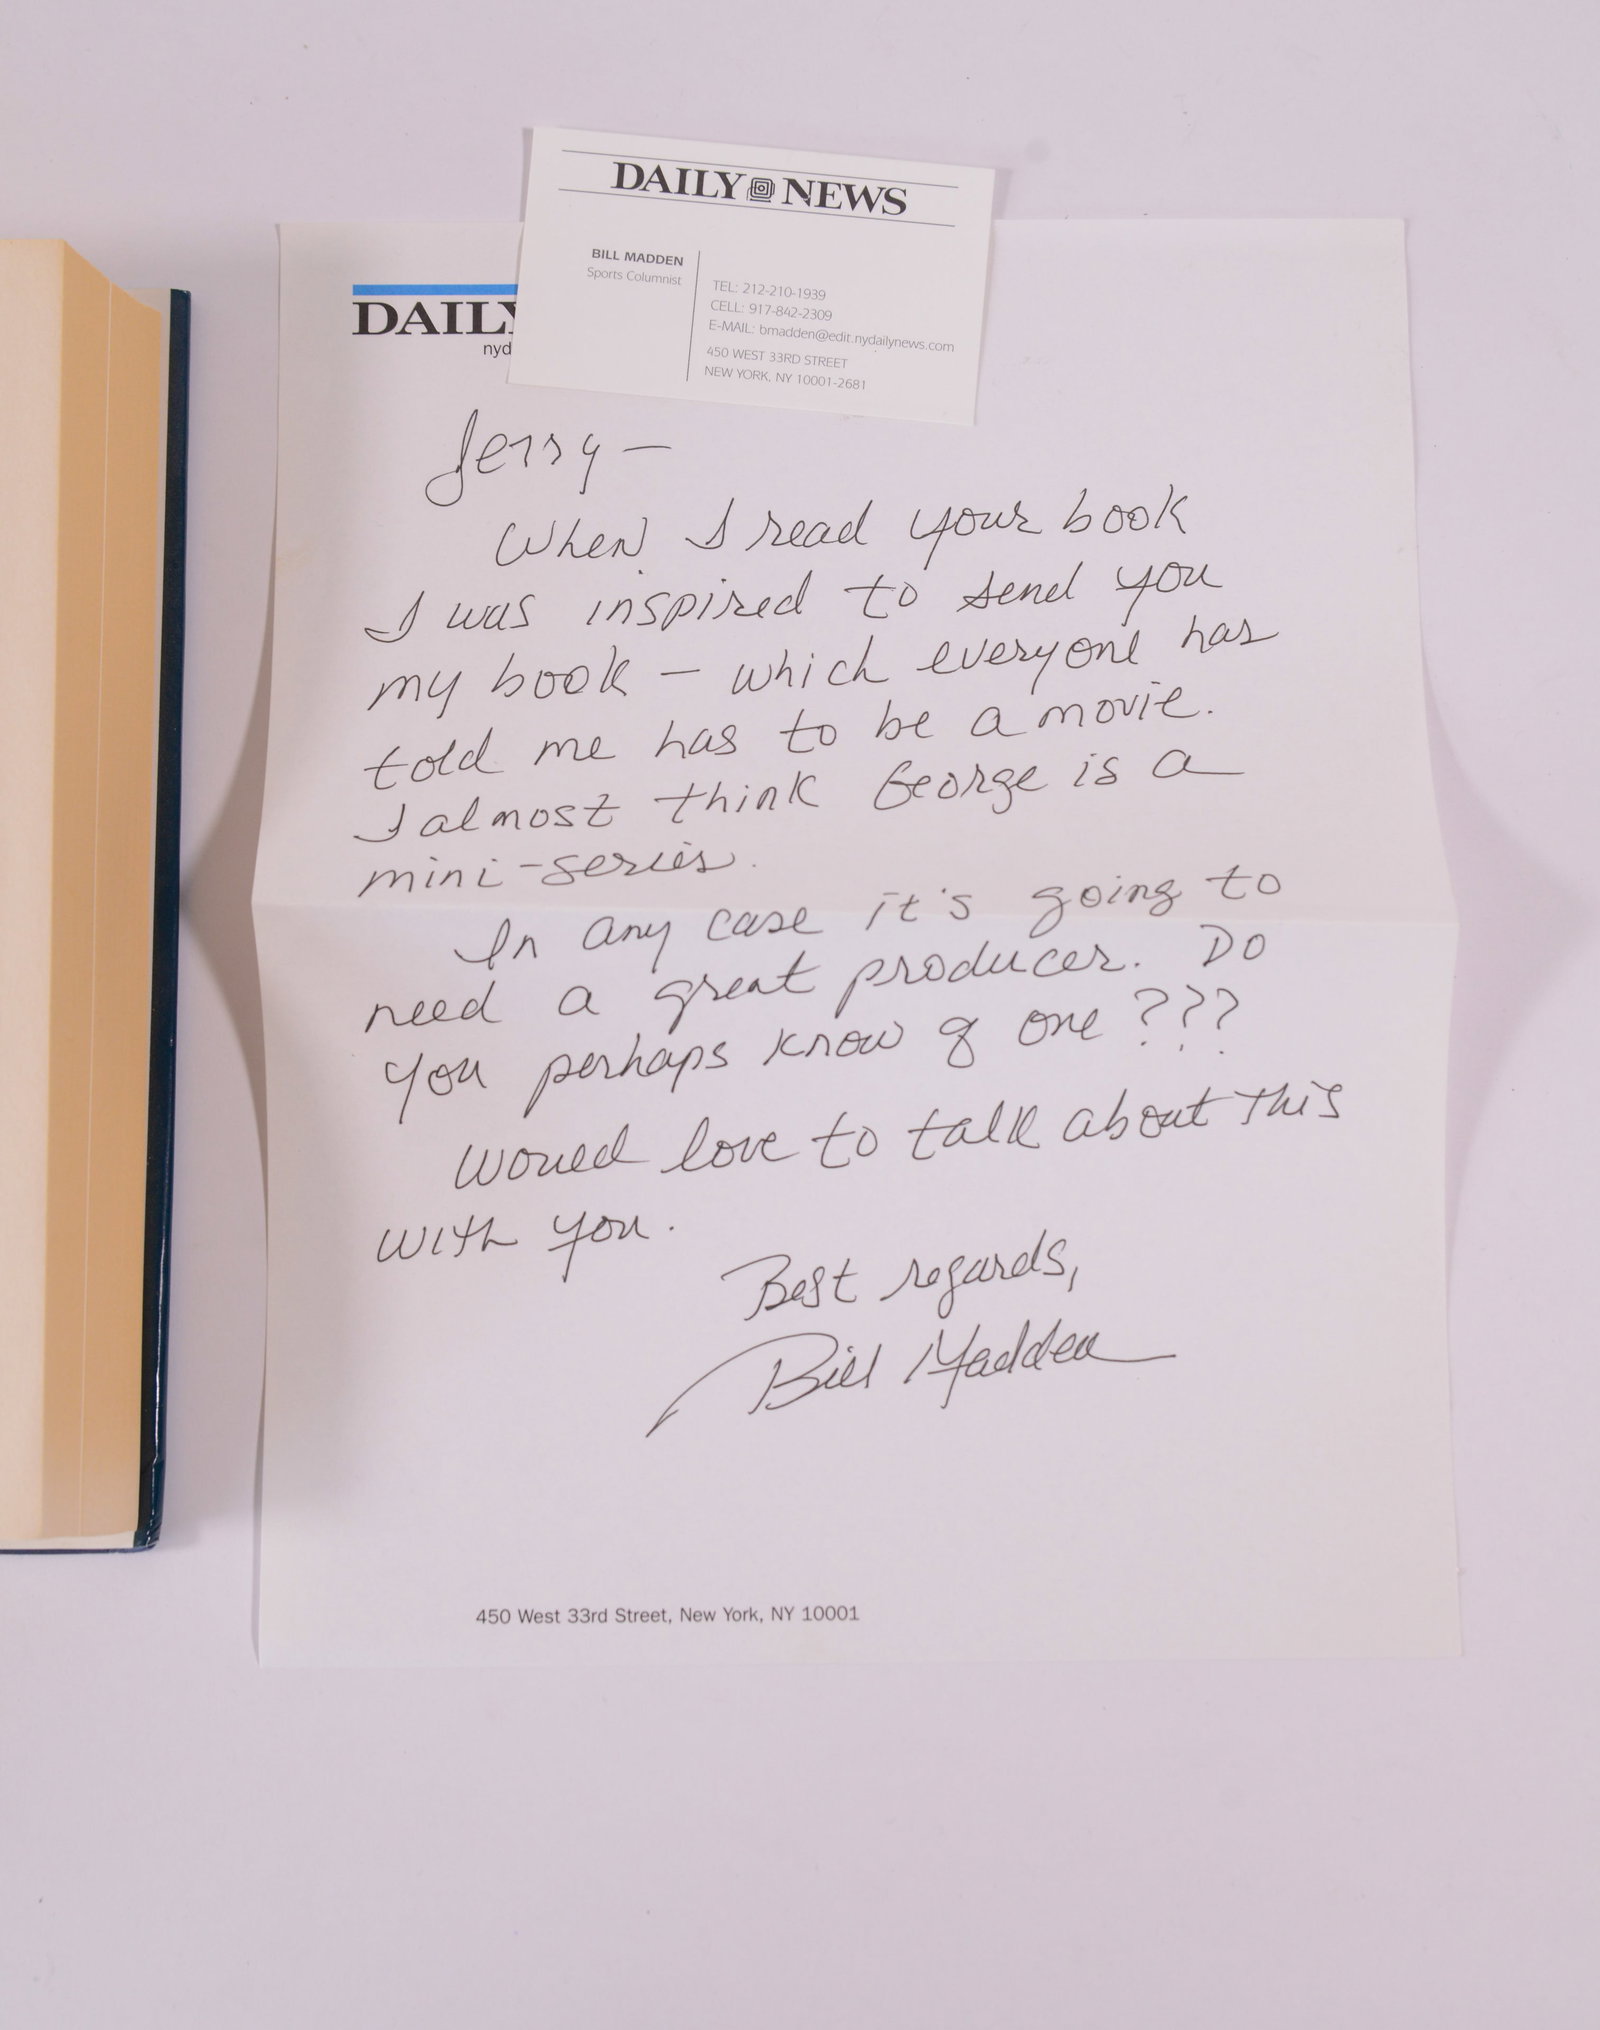 DAILY NEWS
BILL MADDEN
Sports Columnist
TEL: 212-210-1939
CELL: 917-842-2309
E-MAIL: bmadden@edit.nydailynews.com
450 WEST 33RD STREET
NEW YORK, NY 10001-2681
DAILY
nyd
Jerry —
When I read your book
I was inspired to send you
my book — which everyone has
told me has to be a movie.
I almost think George is a
mini-series.
In any case it's going to
need a great producer. Do
you perhaps know of one???
Would love to talk about this
with you.
Best regards,
Bill Madden
450 West 33rd Street, New York, NY 10001